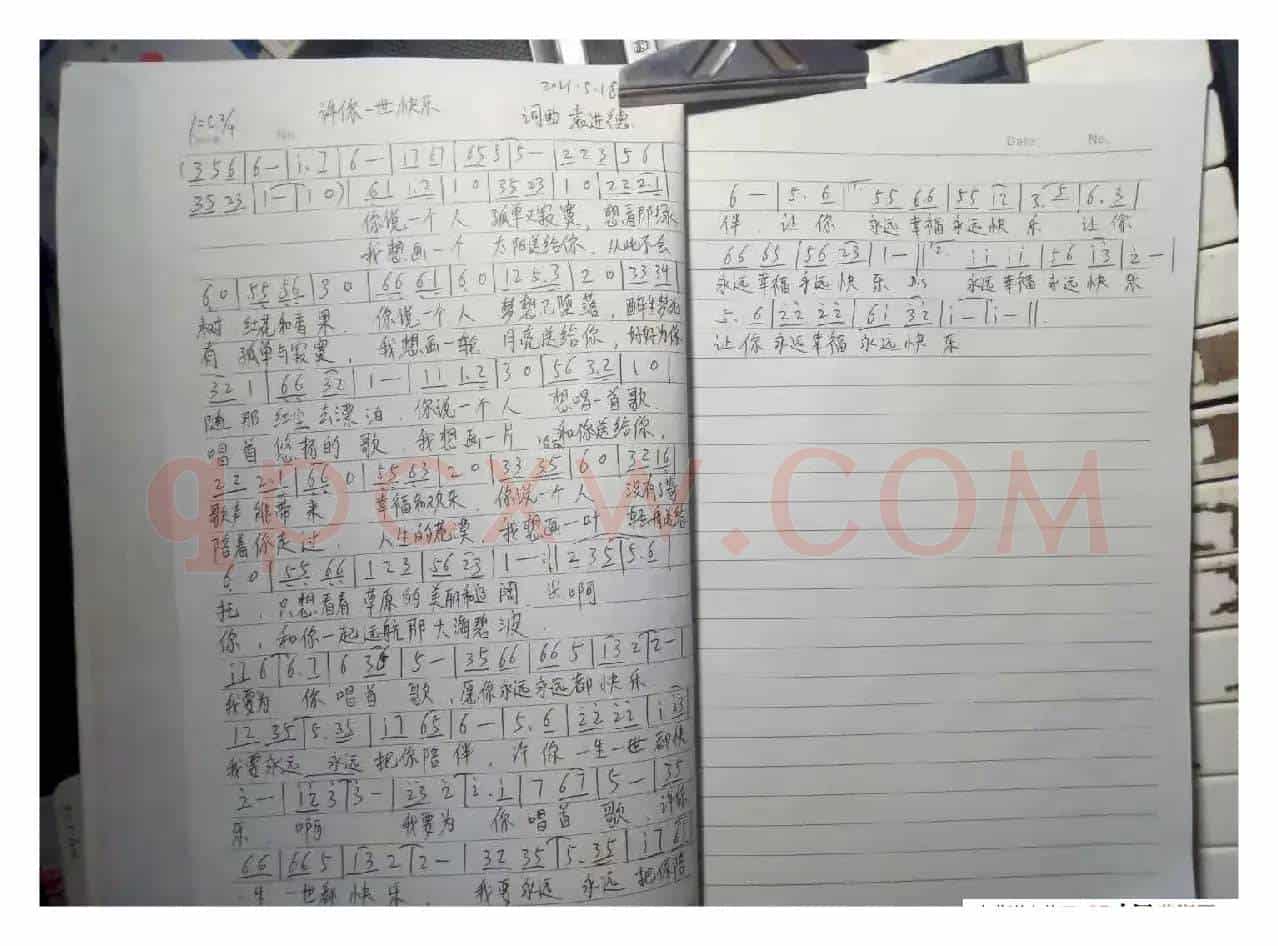 2021.5.18
许你一世快乐
1=C 2/4
词曲 袁进德
Date
No.
(3 5 6 | 6 - | i. 7 | 6 - | 17 67 | 65 3 | 5 - | 2 2 3 | 5 6 |
35 23 | 1 - | 1 0) | 61 1.2 | 1 0 | 35 23 | 1 0 | 22 2.1 |
你说一个人 孤单又寂寞，想看那绿
我想画一个 太阳送给你，从此不会
6 0 | 55 56 | 3 0 | 66 61 | 6 0 | 12 5.3 | 2 0 | 33 34 |
树 红花和青果. 你说一个人 梦想已堕落，醉生梦死
有 孤单与寂寞， 我想画一轮 月亮送给你，好好为你
32 1 | 66 32 | 1 - | 11 1.2 | 3 0 | 56 3.2 | 1 0 |
随那红尘去漂泊. 你说一个人 想唱一首歌.
唱首悠扬的歌. 我想画一片 和你送给你，
22 2.1 | 66 0 | 55 63 | 2 0 | 33 35 | 6 0 | 32 16 |
歌声能带来 幸福和欢乐. 你说一个人 没有
陪着你走过. 人生的荒漠. 我想画一叶
6 0 | 55 66 | 1 2 3 | 56 23 | 1 - :|| 2 3 5 | 5. 6 |
托，只想看看草原的美丽和辽阔. 啊
你，和你一起远航那大海碧波.
i i 6 | 6. 7 | 6 36 | 5 - | 35 66 | 66 5 | i3 2 | 2 - |
我要为 你唱首 歌，愿你永远永远都快乐
12 35 | 5. 35 | i7 65 | 6 - | 5. 6 | 22 22 | i 23 |
我要永远 永远把你陪伴，许你一生一世都快
2 - | i2 3 | 3 - | 23 2 | 2. i | 7 67 | 5 - | 35
乐 啊 我要为 你唱首 歌，许你
66 | 66 5 | i3 2 | 2 - | 32 35 | 5. 35 | i7 6
生一世都快乐， 我要永远 永远把你陪
Date
No.
6 - | 5. 6 | 55 66 | 55 12 | 3. 5 | 6. 3 |
伴. 让你 永远幸福永远快乐 让你
66 65 | 56 23 | 1 - :|| 2. ii ii | 56 i3 | 2 - |
永远幸福永远快乐 永远幸福永远快乐
5. 6 | 22 22 | 6i 32 | i - | i - ||
让你永远幸福永远快乐
qpcxw.COM